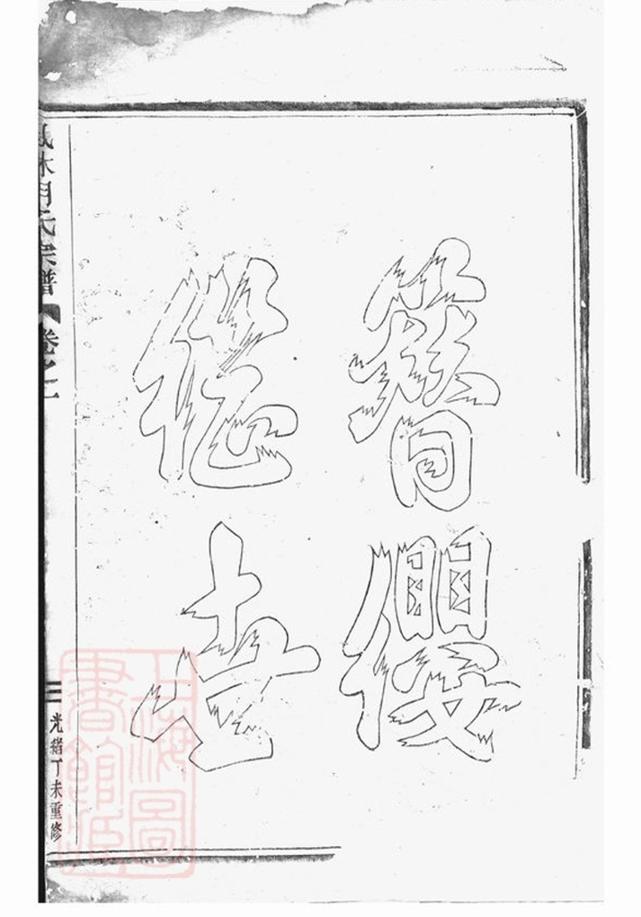 簪纓
繼世
氏宗譜 卷之一
光緒丁未重修
上海圖
書館藏